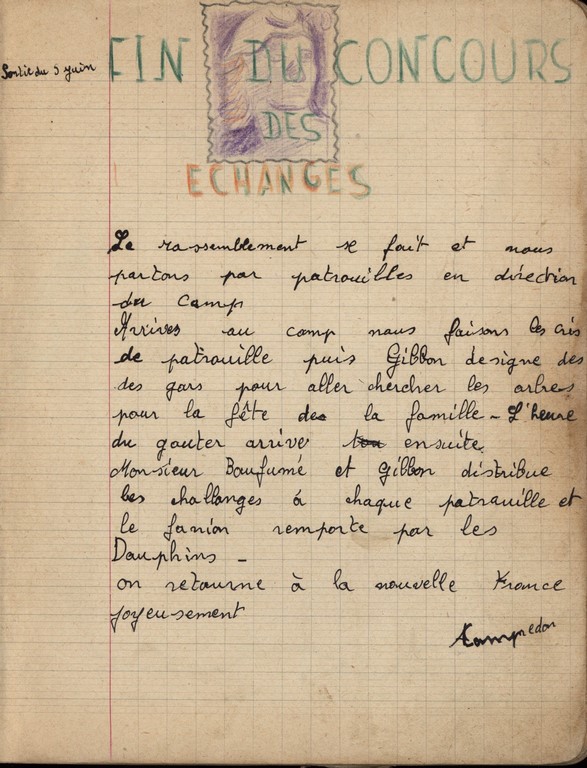 Sortie du 5 Juin
FIN DU CONCOURS
DES
ECHANGES
Le rassemblement se fait et nous
partons par patrouilles en direction
du camp
Arrives au camp nous faisons les cris
de patrouille puis Gibbon designe des
des gars pour aller chercher les arbres
pour la fête de la famille - L'heure
du gouter arrive ensuite
Monsieur Baufumé et Gibbon distribue
les challanges à chaque patrouille et
le fanion remporte par les
Dauphins -
on retourne à la nouvelle France
joyeusement